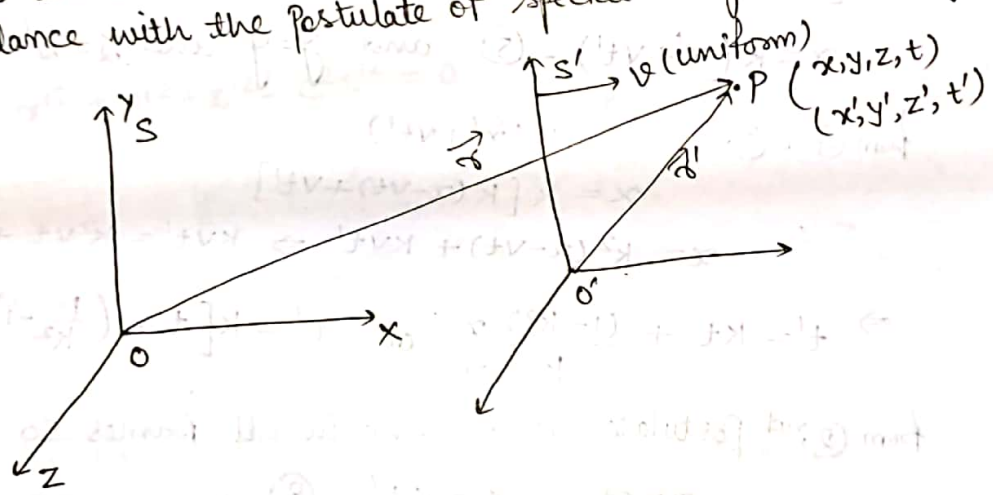 lance with the Postulate of
S'
v (uniform)
P (x, y, z, t)
(x', y', z', t')
Y
S
r⃗
r⃗'
O'
X
O
Z